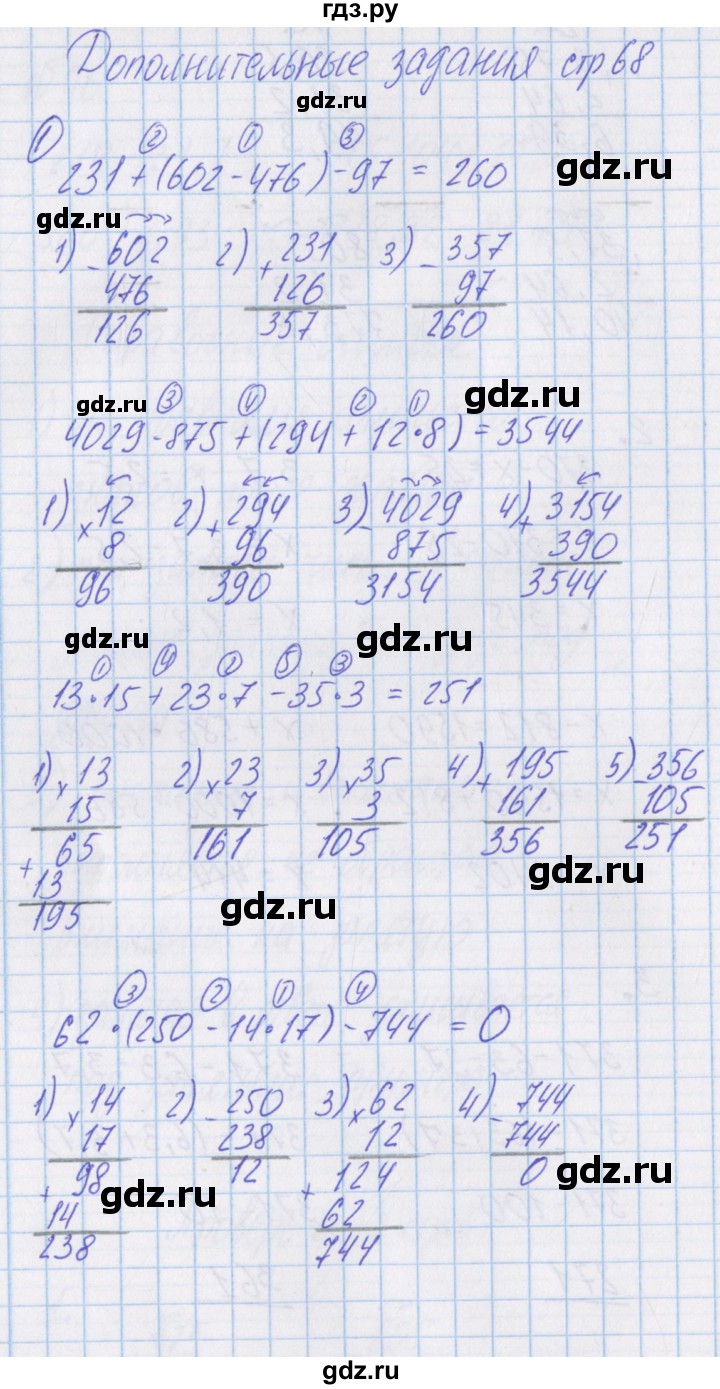 гдз.ру
Дополнительные задания стр 68
gdz.ru
① ② ① ③
231 + (602 - 476) - 97 = 260
gdz.ru
gdz.ru
1) - 602 2) + 231 3) - 357
476 126 97
126 357 260
gdz.ru
gdz.ru
③ ④ ② ①
4029 - 875 + (294 + 12 · 8) = 3544
1) × 12 2) + 294 3) - 4029 4) + 3154
8 96 875 390
96 390 3154 3544
gdz.ru
gdz.ru
① ④ ② ⑤ ③
13 · 15 + 23 · 7 - 35 · 3 = 251
1) × 13 2) × 23 3) × 35 4) + 195 5) - 356
15 7 3 161 105
65 161 105 356 251
+ 13
195
gdz.ru
gdz.ru
③ ② ① ④
62 · (250 - 14 · 17) - 744 = 0
1) × 14 2) - 250 3) × 62 4) - 744
17 238 12 744
98 12 124 0
+ 14 + 62
238 744
gdz.ru
gdz.ru
gdz.ru